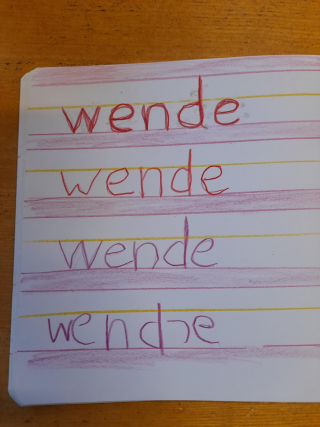 wende
wende
wende
wende